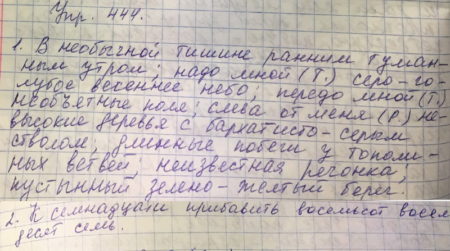 Упр. 444.
1. В необычной тишине ранним туман-
ным утром; надо мной (Т.) серо-го-
лубое весеннее небо; передо мной (Т.)
необъятные поля; слева от меня (Р.) не-
высокие деревья с бархатисто-серым
стволом, длинные побеги у тополи-
ных ветвей; неизвестная речонка;
пустынный зелено-желтый берег.
2. К семнадцати прибавить восемьсот восем
десят семь.